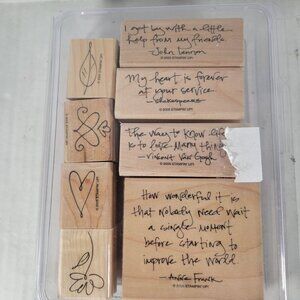 I get by with a little
help from my friends
-John Lennon
© 2005 STAMPIN' UP!
My heart is forever
at your service
-Shakespeare
© 2005 STAMPIN' UP!
The way to know life
is to love many thin
-Vincent Van Gogh
© 2005 STAMPIN' UP!
How wonderful it is
that nobody need wait
a single moment
before starting to
improve the world
-Anne Frank
© 2005 STAMPIN' UP!